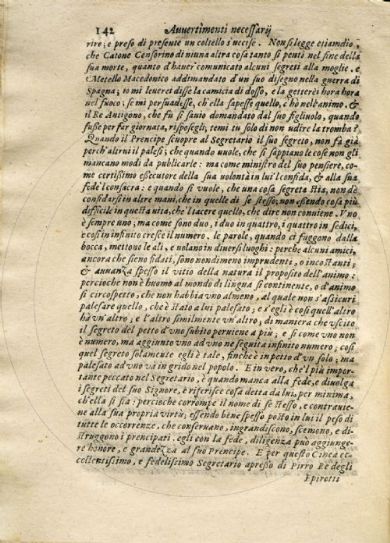 142 Avvertimenti necessarij
rire; e preso di presente un coltello s'uccise. Non si legge etiamdio,
che Catone Censorino di niuna altra cosa tanto si pentì nel fine della
sua morte, quanto d'hauer' comunicato alcuni segreti alla moglie. e
Metello Macedonico addimandato d'un suo disegno nella guerra di
Spagna; io mi leuerei disse la camicia di dosso, e la getterei hora hora
nel fuoco; se mi persuadesse, ch'ella sapesse quello, c'hò nel'animo. &
il Re Antigono, che fù sì tanto domandato dal suo figliuolo, quando
fusse per far giornata, risposegli, temi tu solo di non udire la tromba?
Quando il Prencipe scuopre al Segretario il suo segreto, non fa già
perch'altrui il palesi; che quando uuole, che si sappiano le cose non gli
mancano modi da publicarle: ma come ministro del suo pensiere, co-
me certissimo essecutore della sua volontà in lui confida, & alla sua
fede consacra: e quando si vuole, che una cosa segreta stia, non dè
confidarsi in altre mani, che in quelle di se stesso; non essendo cosa più
difficile in questa vita, che'l tacere quello, che dire non conuiene. Vno
è sempre uno; ma come sono due, i due in quattro, i quattro in sedici,
e così in infinito cresce il numero. le parole, quando ci fuggono dalla
bocca, mettono le ali, e volano in diuersi luoghi: perche alcuni amici,
ancora che sieno fidati, sono nondimeno imprudenti, o incostanti;
& auuanza spesso il vitio della natura il proposito dell'animo:
percioche non è huomo al mondo di lingua sì continente, o d'animo
sì circospetto, che non habbia uno almeno, al quale non s'assicuri
palesare quello, che è stato à lui palesato, & egli è così quell'altro
hà un'altro; e l'altro similmente vn'altro, di maniera che vscito
il segreto del petto d'vno subito peruiene a più; e sì come vno non
è numero, ma aggiunto vno ad vno ne seguita infinito numero; così
quel segreto solamente egli è tale, finche è in petto d'vn solo; ma
palesato ad vno và in grido nel popolo. E in vero, che'l più impor-
tante peccato nel Segretario, è quando manca alla fede, e diuolga
i segreti del suo Signore, è riferisce cosa detta da lui, per minima,
ch'ella si sia: percioche corrompe il nome di se stesso, e contrauie-
ne alla sua propria virtù; essendo bene spesso posto in lui il peso di
tutte le occorrenze, che conseruano, ingrandiscono, scemano, e di-
struggono i prencipati. egli con la fede, diligenza può aggiunge-
re honore, e grandezza al suo Prencipe. E per questo Cinea ec-
cellentissimo, e fedelissimo Segretario apresso di Pirro Re degli
Epirotti